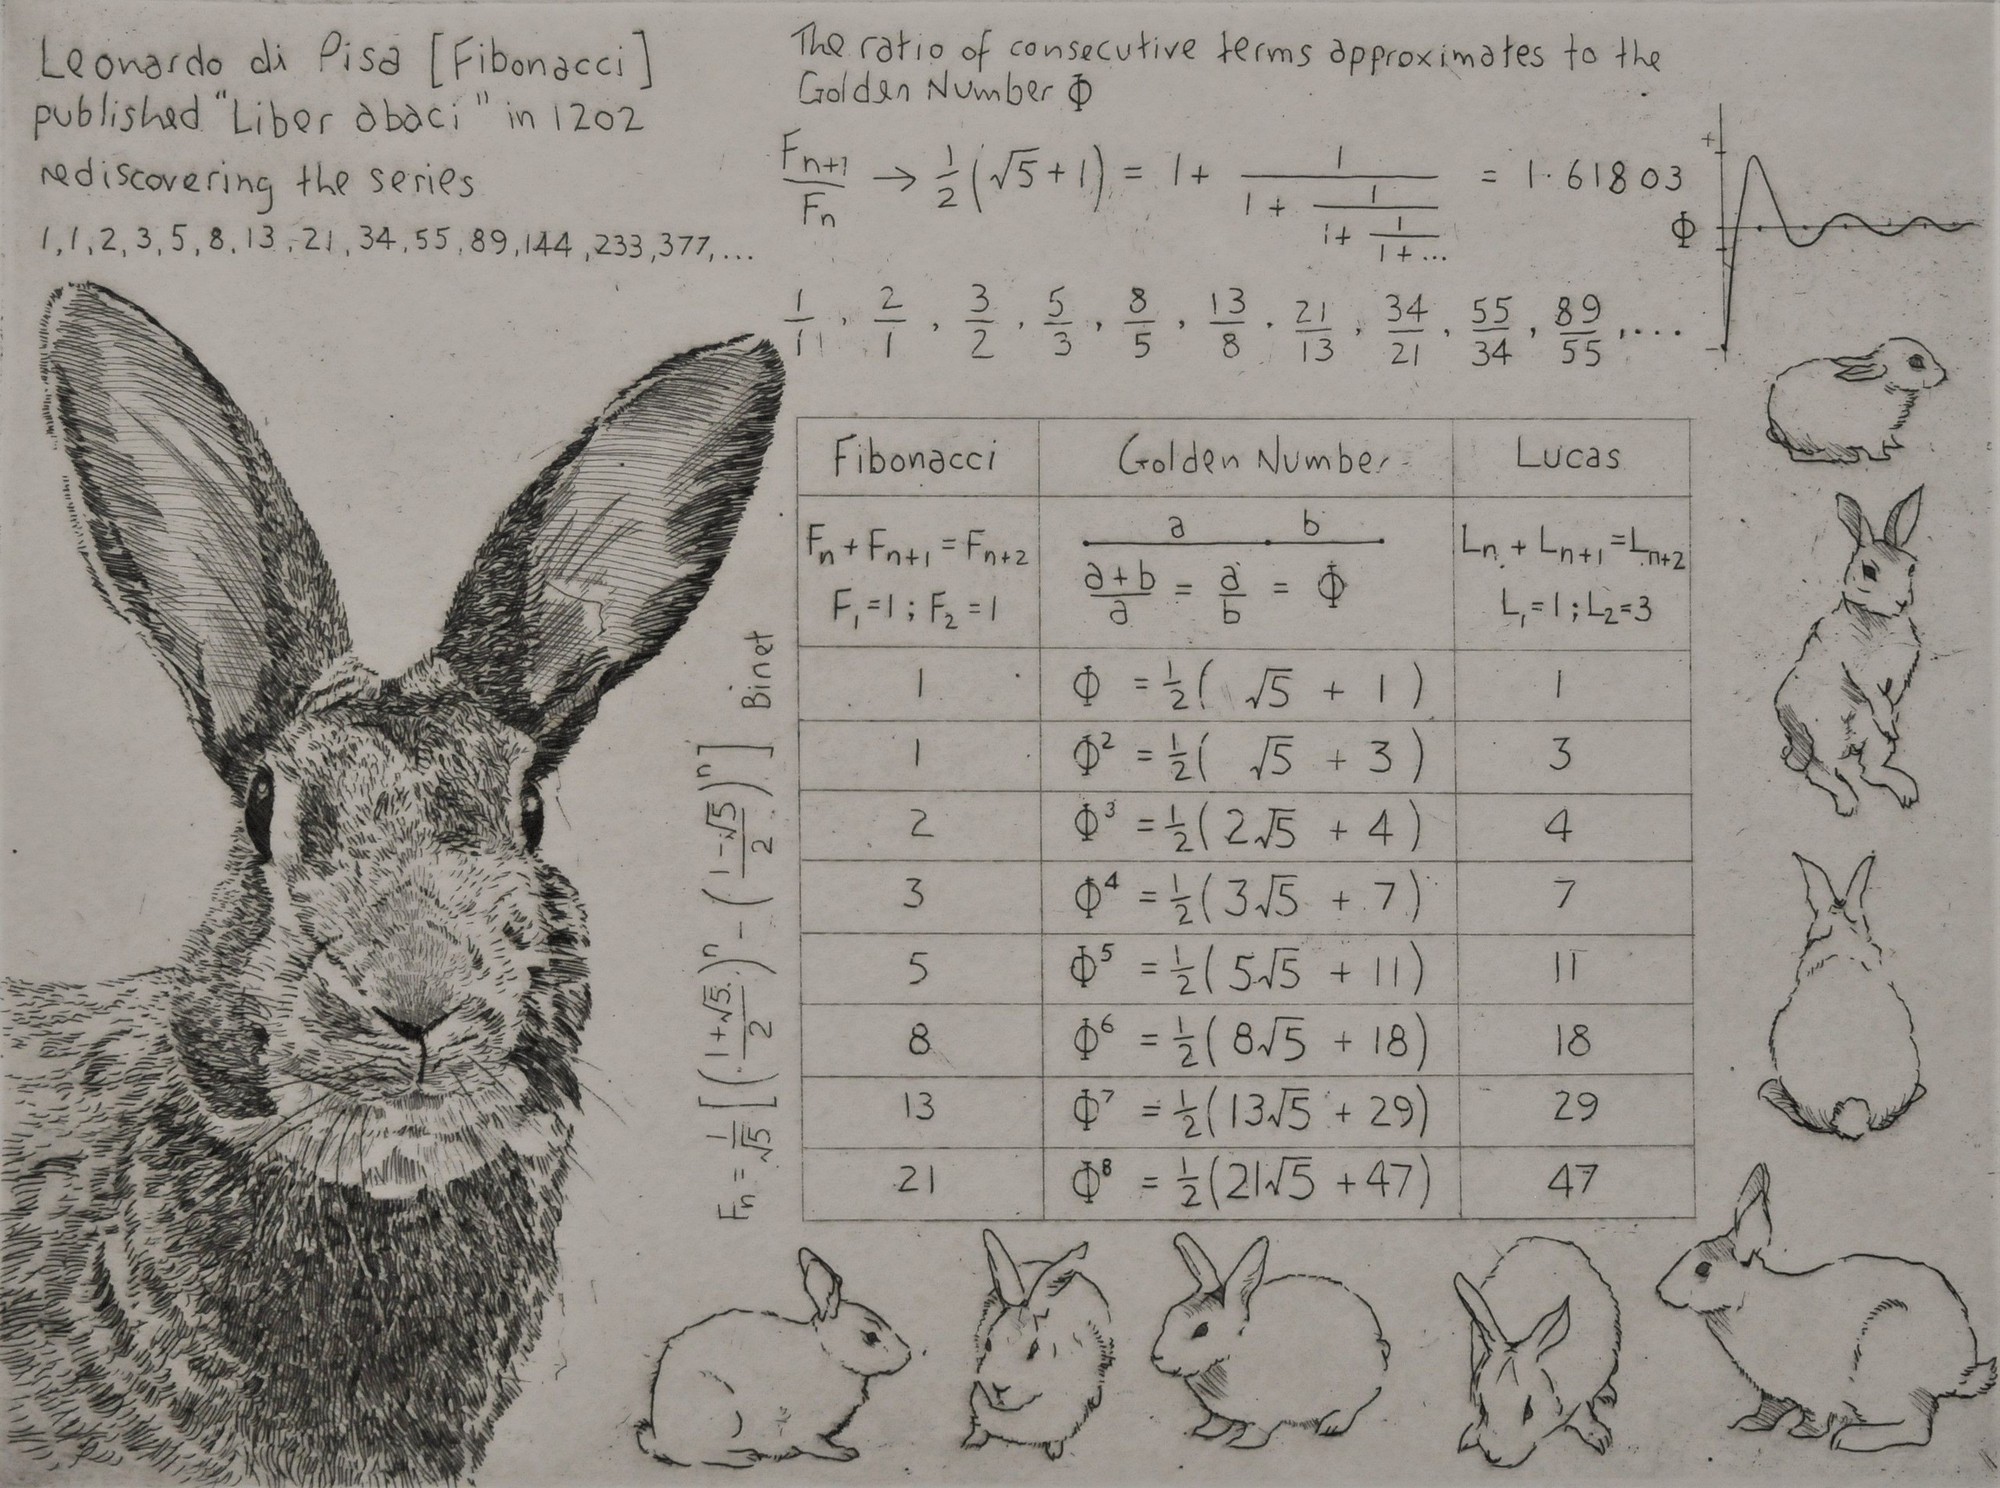 Leonardo di Pisa [Fibonacci]
published "Liber abaci" in 1202
rediscovering the series
1,1,2,3,5,8,13,21,34,55,89,144,233,377,...
The ratio of consecutive terms approximates to the
Golden Number Φ
F_{n+1}/F_n → 1/2(√5+1) = 1+ 1/(1+ 1/(1+ 1/(1+...))) = 1·61803
+
Φ
−
1/1, 2/1, 3/2, 5/3, 8/5, 13/8, 21/13, 34/21, 55/34, 89/55,...
F_n = 1/√5 [((1+√5)/2)^n − ((1−√5)/2)^n] Binet
Fibonacci Golden Number Lucas
a b
F_n + F_{n+1} = F_{n+2} (a+b)/a = a/b = Φ L_n + L_{n+1} = L_{n+2}
F_1=1; F_2=1 L_1=1; L_2=3
1 Φ = 1/2(√5 + 1) 1
1 Φ² = 1/2(√5 + 3) 3
2 Φ³ = 1/2(2√5 + 4) 4
3 Φ⁴ = 1/2(3√5 + 7) 7
5 Φ⁵ = 1/2(5√5 + 11) 11
8 Φ⁶ = 1/2(8√5 + 18) 18
13 Φ⁷ = 1/2(13√5 + 29) 29
21 Φ⁸ = 1/2(21√5 + 47) 47